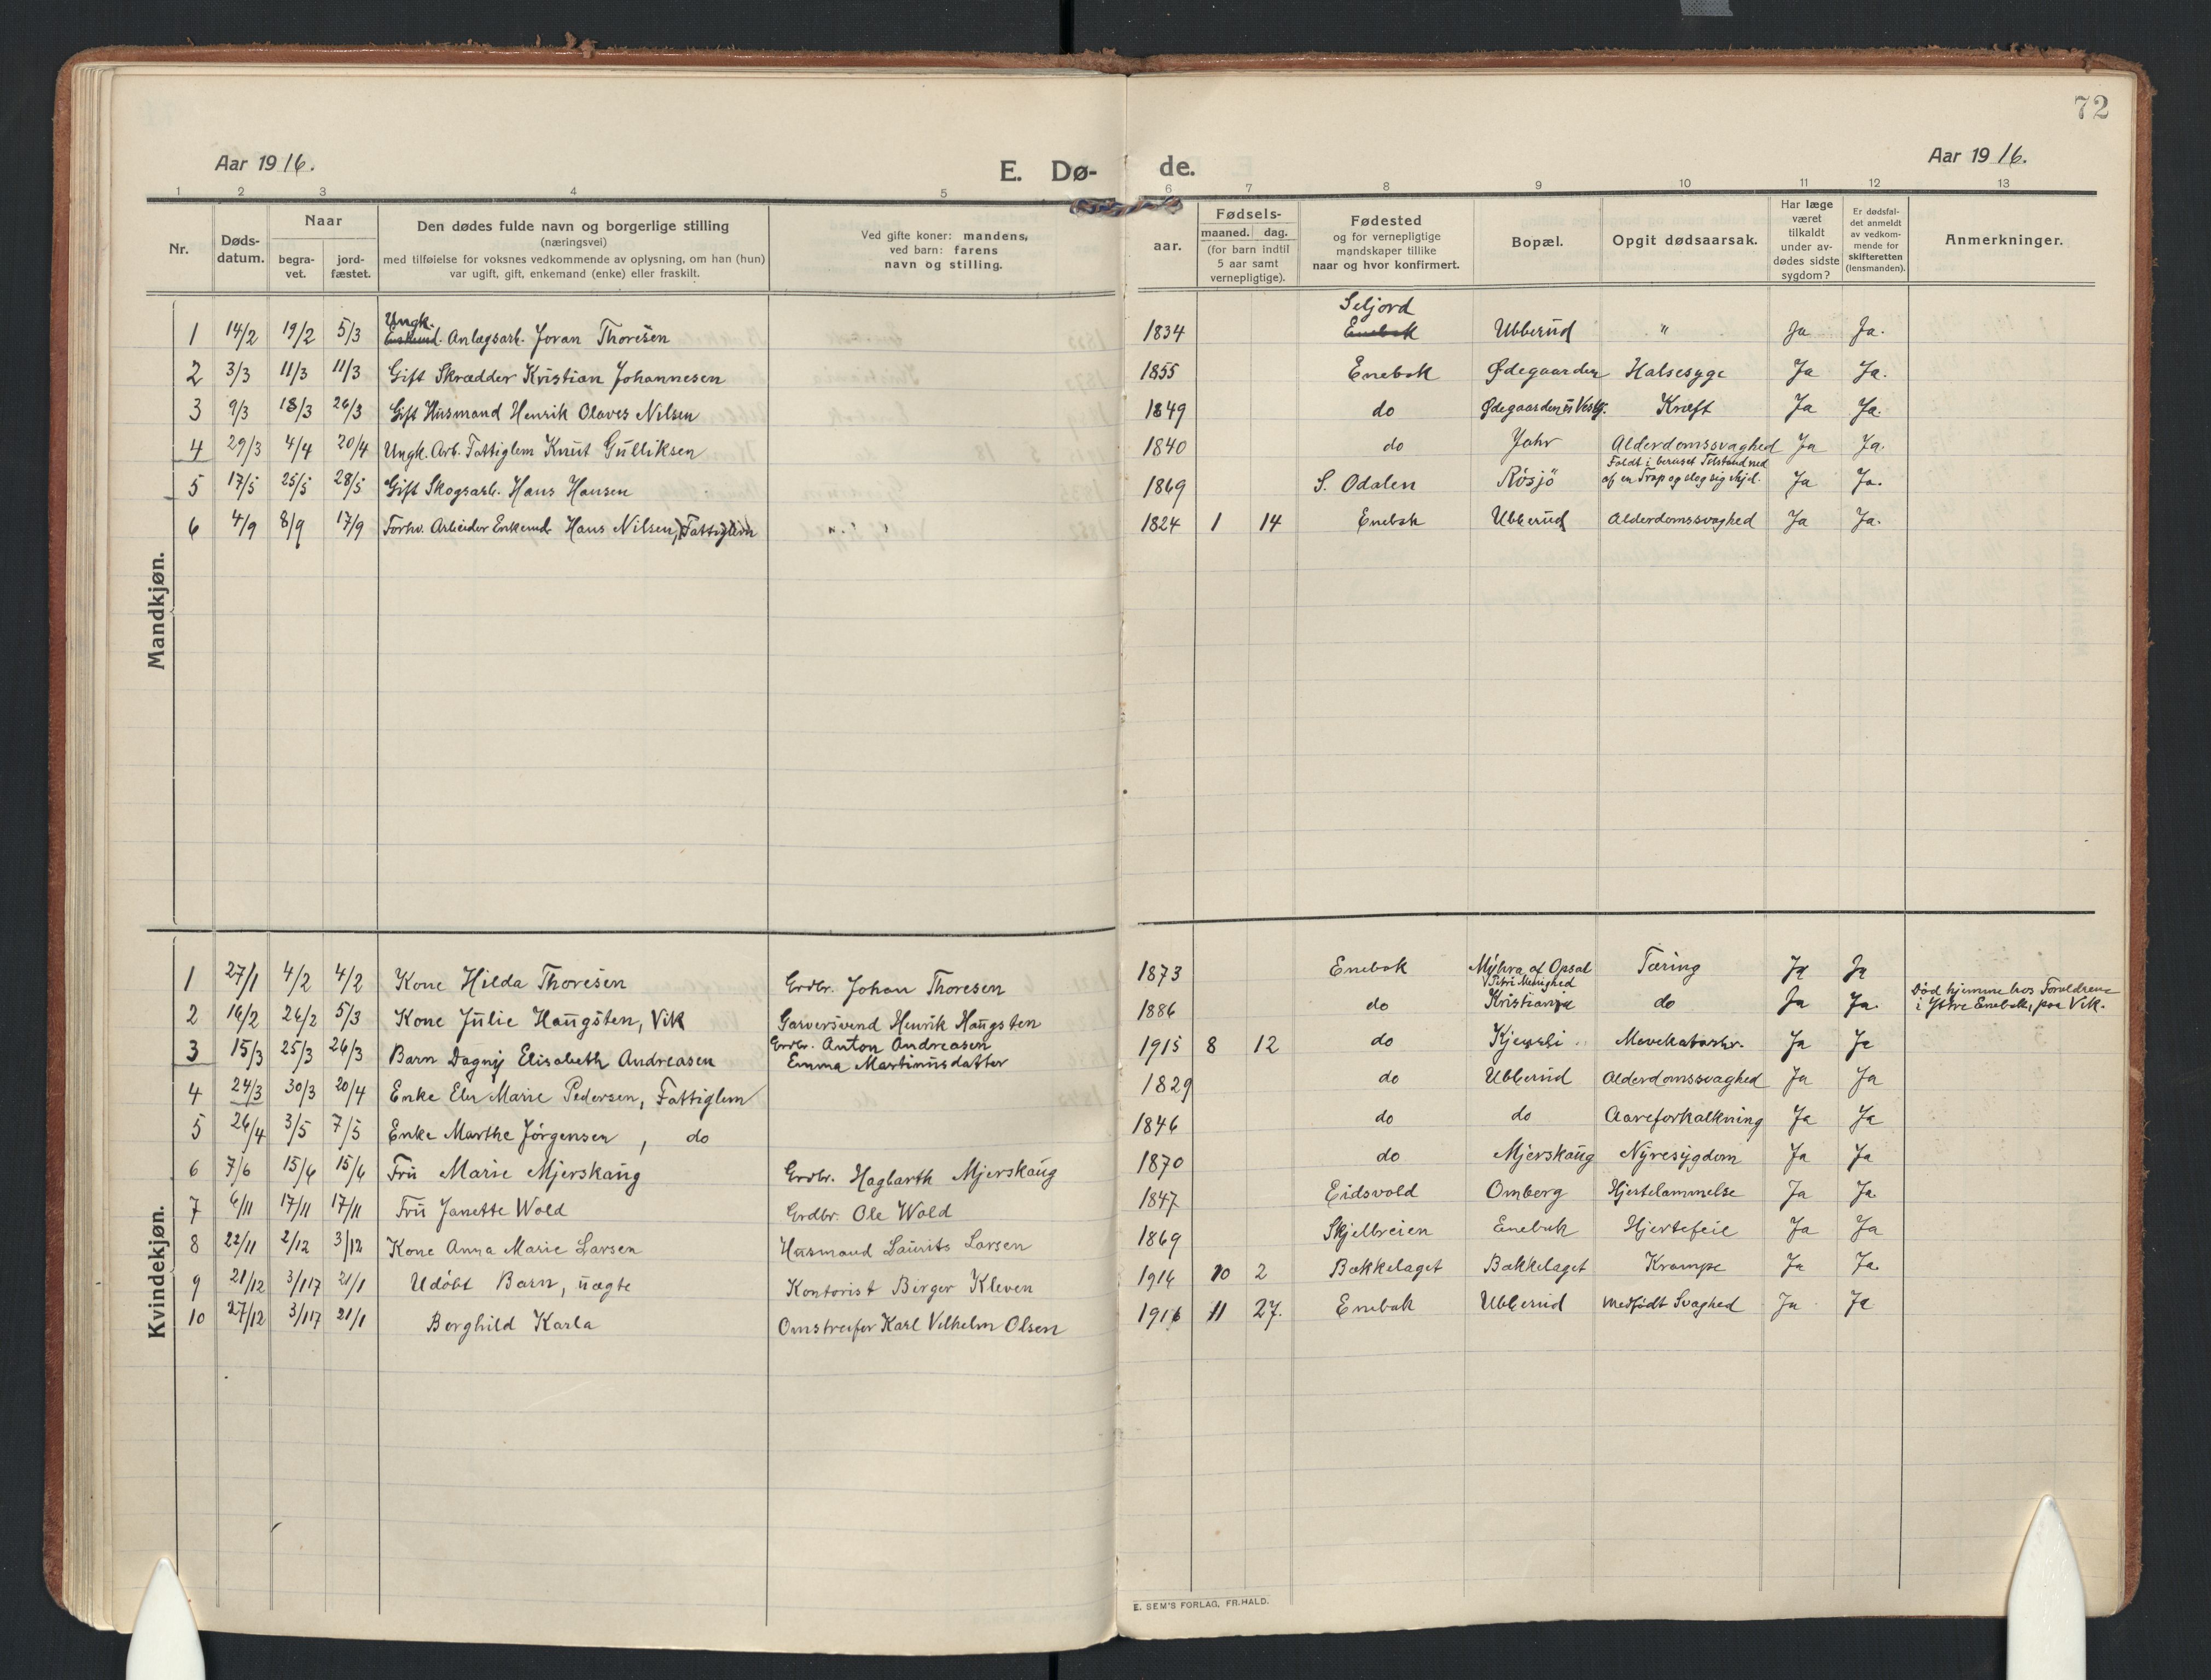 72
Aar 1916. E. Dø- de. Aar 1916.
1 2 3 4 5 6 7 8 9 10 11 12 13
Nr.
Døds-
datum.
Naar
begra-
vet.
jord-
fæstet.
Den dødes fulde navn og borgerlige stilling
(næringsvei)
med tilføielse for voksnes vedkommende av oplysning, om han (hun)
var ugift, gift, enkemand (enke) eller fraskilt.
Ved gifte koner: mandens,
ved barn: farens
navn og stilling.
aar.
Fødsels-
maaned. dag.
(for barn indtil
5 aar samt
vernepligtige).
Fødested
og for vernepligtige
mandskaper tillike
naar og hvor konfirmert.
Bopæl.
Opgit dødsaarsak.
Har læge
været
tilkaldt
under av-
dødes sidste
sygdom?
Er dødsfal-
det anmeldt
av vedkom-
mende for
skifteretten
(lensmanden).
Anmerkninger.
Mandkjøn.
Ungk. Seljord
1 14/2 19/2 5/3 Enkemd. Anlægsarb. Jovan Thoresen 1834 Enebak Ubberud " Ja Ja.
2 3/3 11/3 11/3 Gift Skrædder Kristian Johannesen 1855 Enebak Ødegaarden Halsesyge Ja Ja.
3 9/3 18/3 26/3 Gift Husmand Henrik Olaves Nilsen 1849 do Ødegaarden Kræft Ja Ja.
4 29/3 4/4 20/4 Ungk. Arb. Fattiglem Knut Gulliksen 1840 do Jahr Alderdomssvaghed Ja Ja.
Faldt i beruset Tilstand ned
5 17/5 25/5 28/5 Gift Skogsarb. Hans Hansen 1869 S. Odalen Røsjö af en Trap og slog sig ihjel. Ja Ja.
6 4/9 8/9 17/9 Forhv. Arbeider Enkemd Hans Nilsen, Fattiglem " " 1824 1 14 Enebak Ubberud Alderdomssvaghed Ja Ja.
Kvindekjøn.
1 27/1 4/2 4/2 Kone Hilda Thoresen Grdbr. Johan Thoresen 1873 Enebak Myhra af Opsal Tæring Ja Ja
Petri Menighed Død hjemme hos Forældrene
2 16/2 26/2 5/3 Kone Julie Haugsten, Vik Garversvend Henrik Haugsten 1886 do Kristiania do Ja Ja. i Ytre Enebak, paa Vik.
Grdbr. Anton Andreasen
3 15/3 25/3 26/3 Barn Dagny Elisabeth Andreasen Emma Martinusdatter 1915 8 12 do Mavekatarrh. Ja Ja
4 24/3 30/3 20/4 Enke Elen Marie Pedersen, Fattiglem 1829 do Ubberud Alderdomssvaghed Ja Ja
5 26/4 3/5 7/5 Enke Marthe Jørgensen, do 1846 do do Aareforkalkning Ja Ja
6 7/6 15/6 15/6 Fru Marie Mjerskaug Grdbr. Hagbarth Mjerskaug 1870 do Mjerskaug Nyresygdom Ja Ja
7 6/11 17/11 17/11 Fru Janette Wold Grdbr. Ole Wold 1847 Eidsvold Omberg Hjertelammelse Ja Ja
8 22/11 2/12 3/12 Kone Anna Marie Larsen Husmand Laurits Larsen 1869 Skjelbreien Enebak Hjertefeil Ja Ja
9 21/12 3/1 17 21/1 Udøbt Barn, uægte Kontorist Birger Kleven 1916 10 2 Bækkelaget Bækkelaget Krampe Ja Ja
10 27/12 3/1 17 21/1 Borghild Karla Omstreifer Karl Vilhelm Olsen 1916 11 27. Enebak Ubberud Medfødt Svaghed Ja Ja
E. SEM'S FORLAG, FR.HALD.